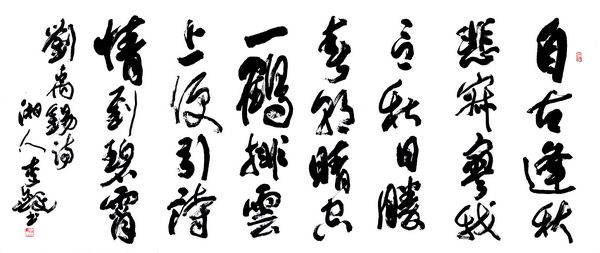 自古逢秋
悲寂寥我
言秋日勝
春朝晴空
一鶴排雲
上便引詩
情到碧霄
劉禹錫詩
湘人李書